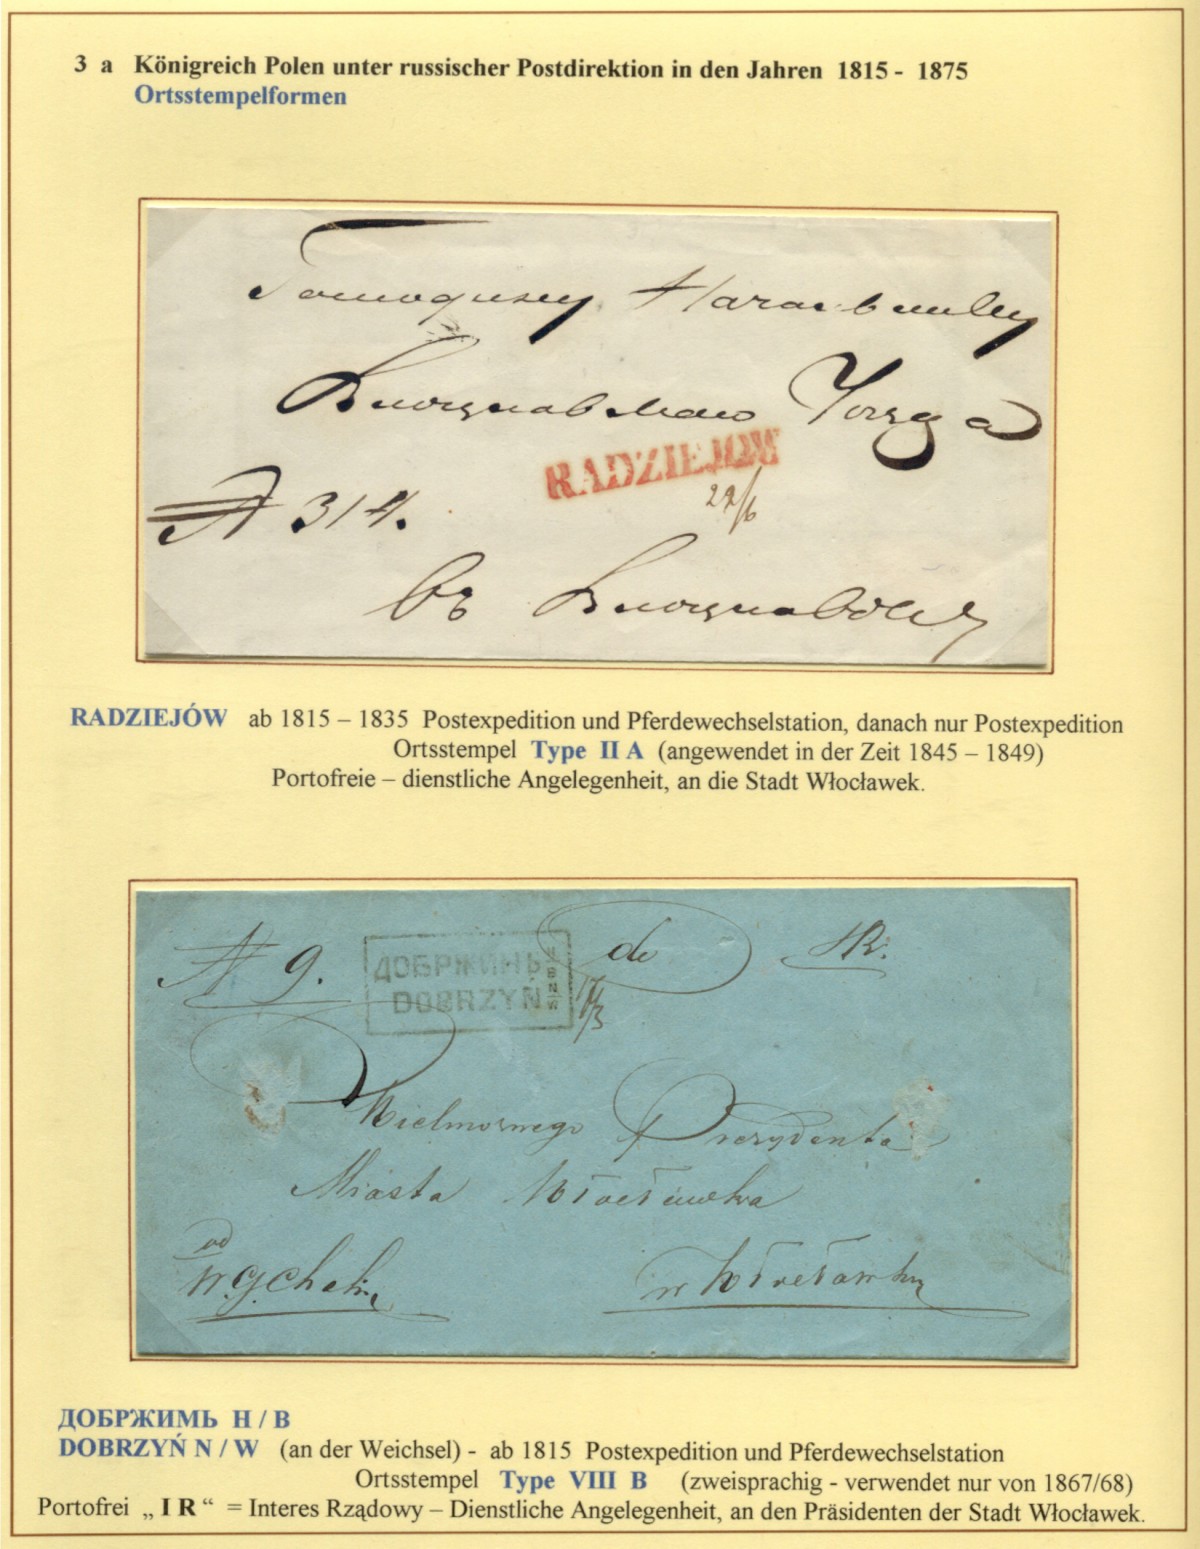 3 a Königreich Polen unter russischer Postdirektion in den Jahren 1815 - 1875
Ortsstempelformen
Господину Начальнику
Влоцлавскаго Уезда
RADZIEJÓW
22/6
№ 314.
въ Влоцлавске
RADZIEJÓW ab 1815 – 1835 Postexpedition und Pferdewechselstation, danach nur Postexpedition
Ortsstempel Type II A (angewendet in der Zeit 1845 – 1849)
Portofreie – dienstliche Angelegenheit, an die Stadt Włocławek.
№ 9. do IR.
ДОБРЖИНЬ
DOBRZYŃ
Wielmożnego Prezydenta
Miasta Włocławka
od
w Włocławku
ДОБРЖИМЬ Н / В
DOBRZYŃ N / W (an der Weichsel) - ab 1815 Postexpedition und Pferdewechselstation
Ortsstempel Type VIII B (zweisprachig - verwendet nur von 1867/68)
Portofrei „ I R “ = Interes Rządowy – Dienstliche Angelegenheit, an den Präsidenten der Stadt Włocławek.